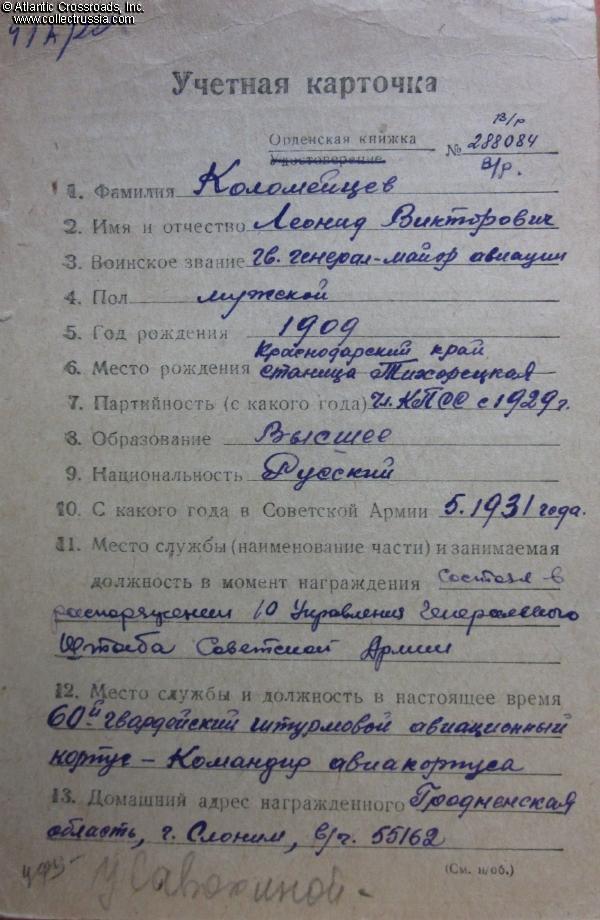 © Atlantic Crossroads, Inc.
www.collectrussia.com
Учетная карточка
в/р
Орденская книжка № 288084
Удостоверение в/р.
1. Фамилия Коломейцев
2. Имя и отчество Леонид Викторович
3. Воинское звание гв. генерал-майор авиации
4. Пол мужской
5. Год рождения 1909
Краснодарский край
6. Место рождения станица Тихорецкая
7. Партийность (с какого года) Чл. КПСС с 1929 г.
8. Образование Высшее
9. Национальность Русский
10. С какого года в Советской Армии 5. 1931 года.
11. Место службы (наименование части) и занимаемая
должность в момент награждения состоял в
распоряжении 10 Управления Генерального
Штаба Советской Армии
12. Место службы и должность в настоящее время
60й гвардейский штурмовой авиационный
корпус – Командир авиакорпуса
13. Домашний адрес награжденного Гродненская
область, г. Слоним, в/ч. 55162
(См. н/об.)
У Савохиной -